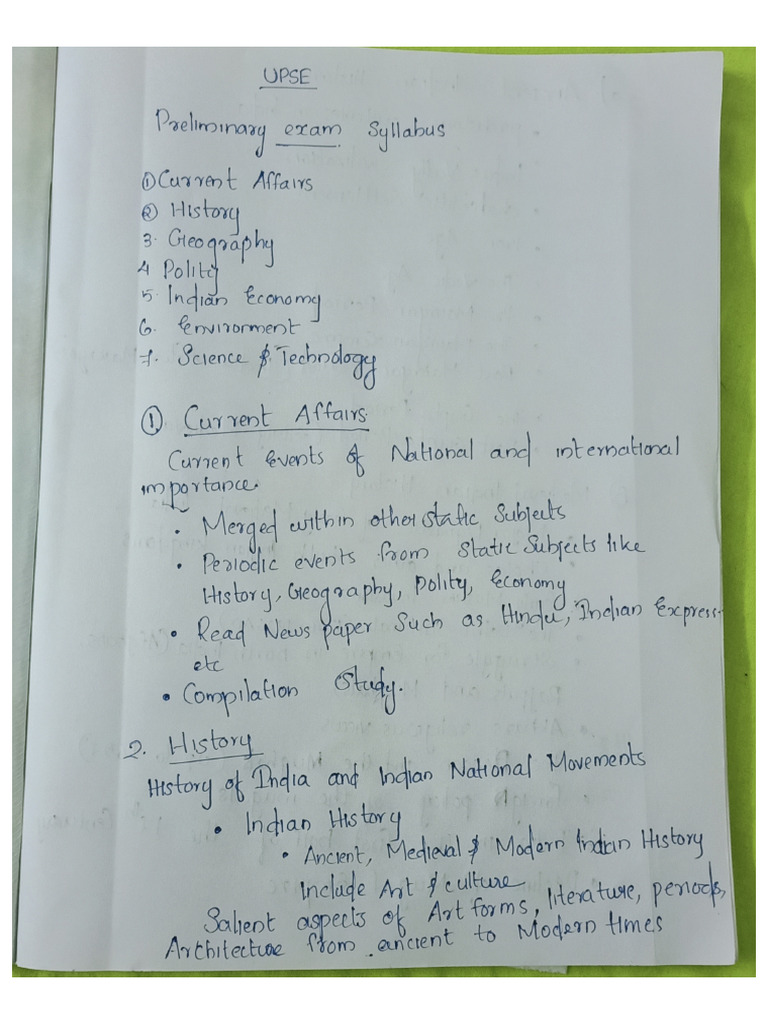 UPSE
Preliminary exam Syllabus
① Current Affairs
② History
3. Geography
4 Polity
5. Indian Economy
6. Environment
7. Science & Technology
① Current Affairs.
Current Events of National and international
importance.
• Merged within other static Subjects
• Periodic events from static Subjects like
History, Geography, Polity, Economy
• Read News paper Such as Hindu, Indian Express.
etc
• Compilation Study.
2. History
History of India and Indian National Movements
• Indian History
• Ancient, Medieval & Modern Indian History
Include Art & culture
Salient aspects of Art forms, literature, periods,
Architecture from ancient to Modern times